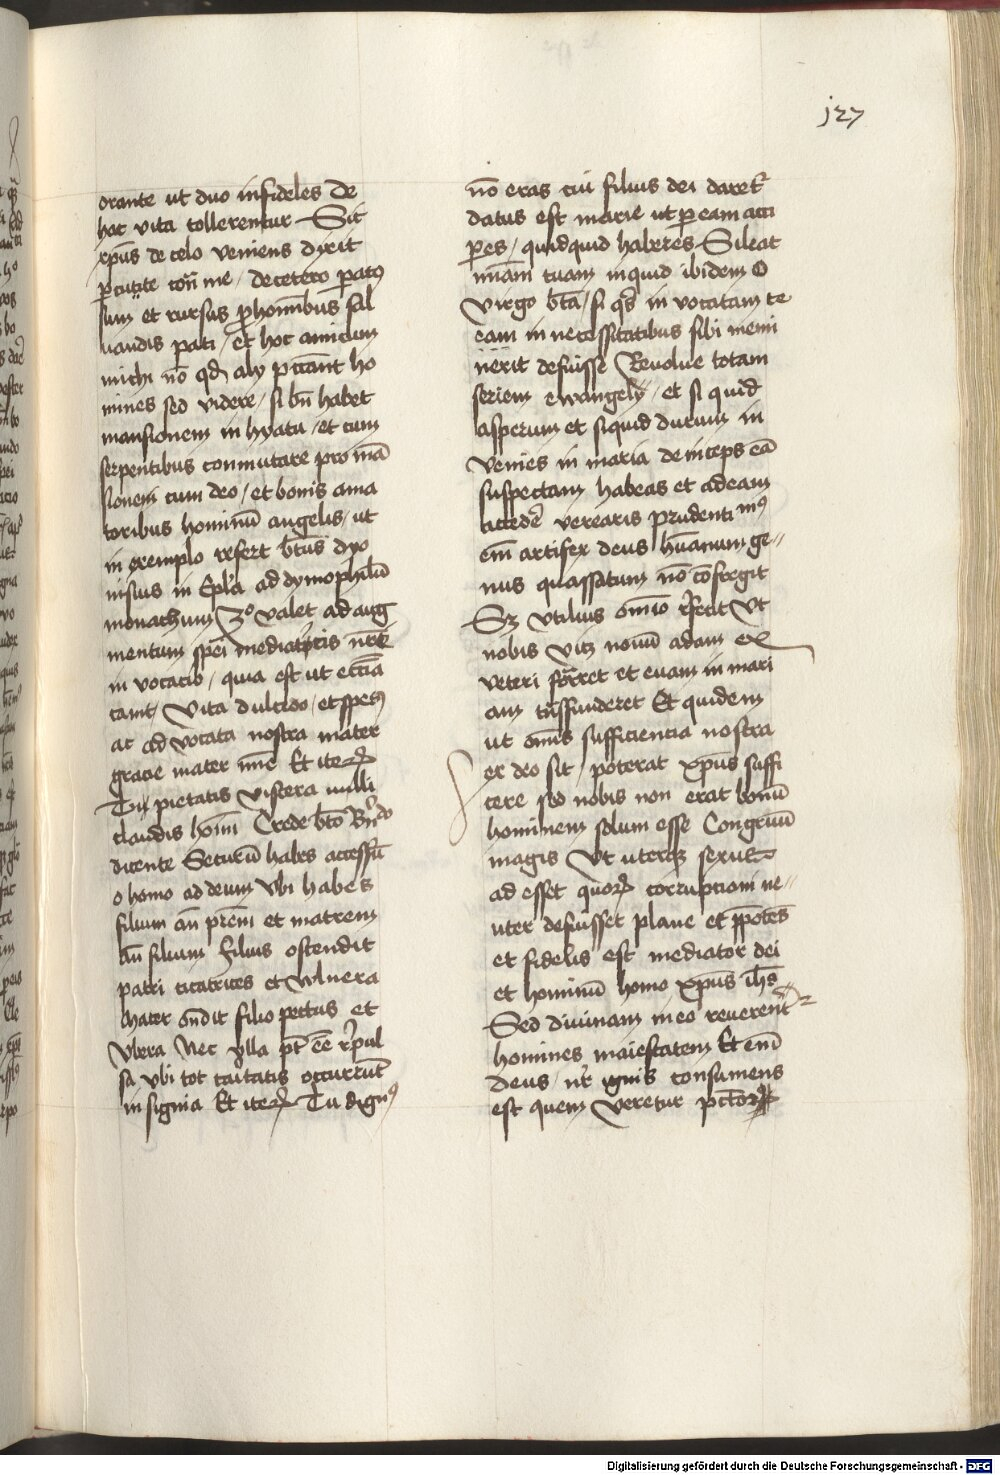 127
orante ut duo infideles de
hac vita tollerentur Sit
xp̄us de celo veniens dixit
ꝑcutite cont̄ me / de cetero paratꝰ
sum et rursus ꝓ hominibus sal
uandis pati / et hoc amicum
michi nō qd̄ aly pccant ho
mines sed videre / si bn̄ habet
mansionem in hyatu / et cum
serpentibus conmutare pro mā
sionem cum deo / et bonis ama
toribus hominū angelis / ut
in exemplo refert btūs dyo
nisius in Epl̄a ad dymophilū
monachum 3º valet ad aug
mentum spei mediatꝛicis nr̄e
in vocatio / quia est ut ecc̄ia
cant / Vita dulcedo / et spes
ac ad vocata nostra mater
gracie mater mīe Et iteꝝ
Tu pietatis viscera nulli
claudis homī Crede bt̄o Bn̄do
dicente Securū habes accessū
o homo ad deum vbi habes
filium an̄ prēm et matrem
an̄ filium filius ostendit
patri cicatrices et vulnera
Mater on̄dit filio pectus et
vbera Nec vlla pt̄ ēe r̄pul
sa vbi tot cāritatis occurrūt
in signia Et iteꝝ Tu dignꝰ
nō eras cui filius dei daret᷑
datus est marie ut ꝑ eam acci
ꝑes / quidquid haberes Sileat
mīam tuam inquid ibidem O
virgo btā / si qs̄ in vocatam te
eam in necessitatibus sibi memi
nerit defuisse Reuolue totam
seriem ewangelij / et si quid
asperum et siquid durum in
venies in maria deinceps eā
suspectam habeas et ad eam
accedē verearis prudentimꝰ
em̄ artifex deus hūanum ge„
nus quassatum nō cōfregit
Sꝫ vtilius om̄io r̄fecit Vt
nobis vitꝫ nouū adam ex
veteri formaret et euam in mari
am trāsfunderet Et quidem
ut om̄is sufficiencia nostra
ex deo sit / poterat xp̄us suffi
cere sed nobis non erat bonū
hominem solum esse Congruū
magis Vt uterqꝫ sexus
ad esset quoꝝ corrupcioni ne„
uter defuisset plane et p̄potēs
et fidelis est mediator dei
et hominū homo xp̄us ih̄s
Sed diuinam in eo reuerent᷑
homines maiestatem Et em̄
deus nr̄ ignis consumens
est quem veretur pcc̄toꝝ
Digitalisierung gefördert durch die Deutsche Forschungsgemeinschaft - DFG